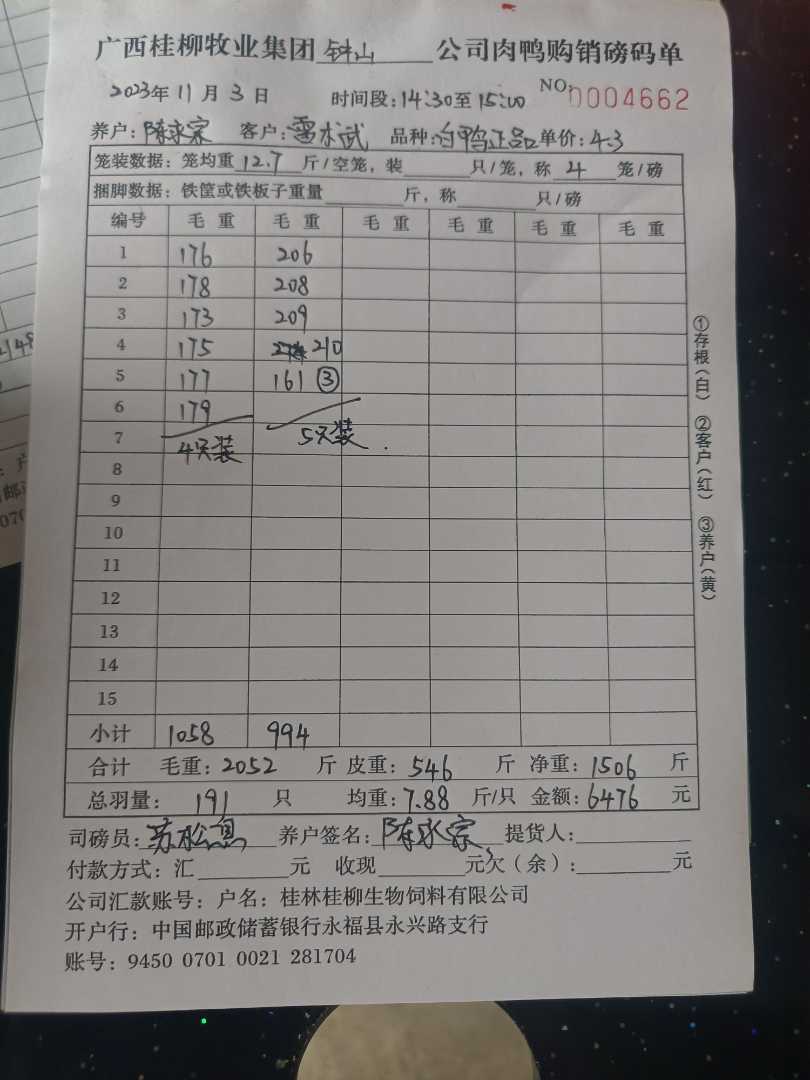 广西桂柳牧业集团 钟山 公司肉鸭购销磅码单
2023年 11 月 3 日 时间段: 14:30至 15:00 NO: 0004662
养户: 陈永宗 客户: 雷木武 品种: 白鸭正品 单价: 4.3
笼装数据: 笼均重 12.7 斤/空笼, 装 只/笼, 称 4 笼/磅
捆脚数据: 铁筐或铁板子重量 斤, 称 只/磅
编号 毛 重 毛 重 毛 重 毛 重 毛 重 毛 重
1 176 206
2 178 208
3 173 209
4 175 210
5 177 161 ③
6 179
7 4只装 5只装
8
9
10
11
12
13
14
15
小计 1058 994
合计 毛重: 2052 斤 皮重: 546 斤 净重: 1506 斤
总羽量: 191 只 均重: 7.88 斤/只 金额: 6476 元
司磅员: 养户签名: 陈永宗 提货人:
付款方式: 汇 元 收现 元欠(余): 元
公司汇款账号: 户名: 桂林桂柳生物饲料有限公司
开户行: 中国邮政储蓄银行永福县永兴路支行
账号: 9450 0701 0021 281704
①存根(白) ②客户(红) ③养户(黄)